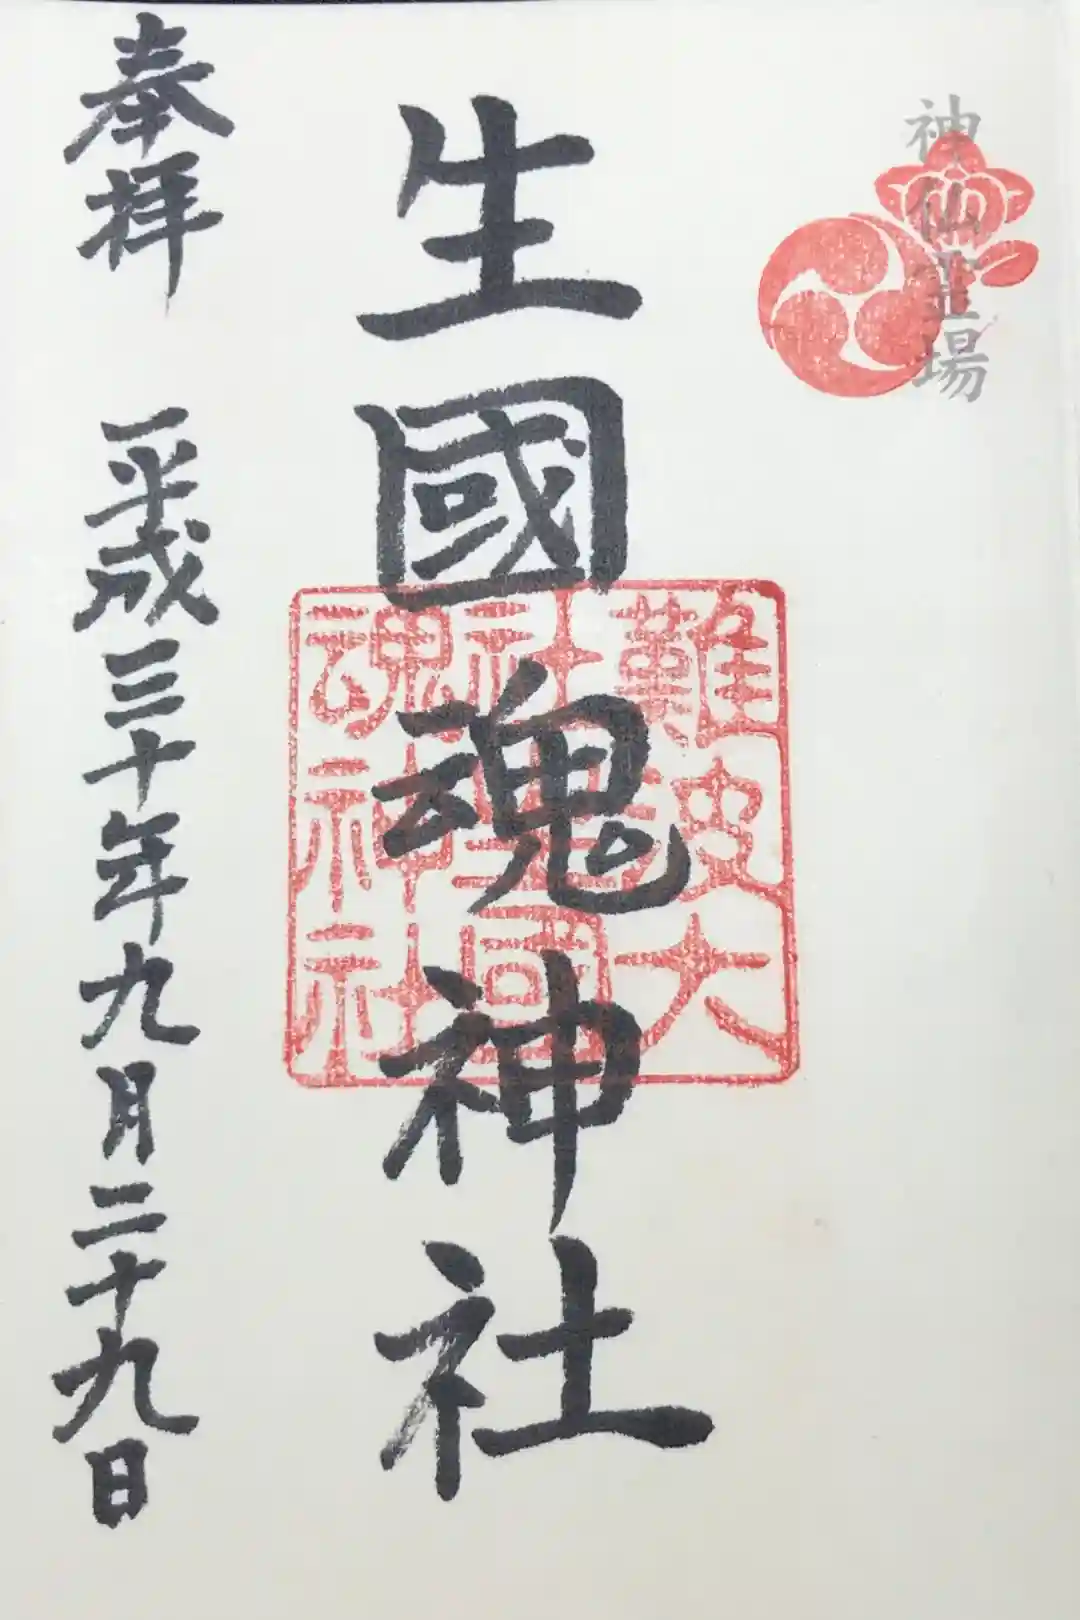 神仏霊場
生國魂神社
難波大
社生國
魂神社
奉拝　平成三十年九月二十九日